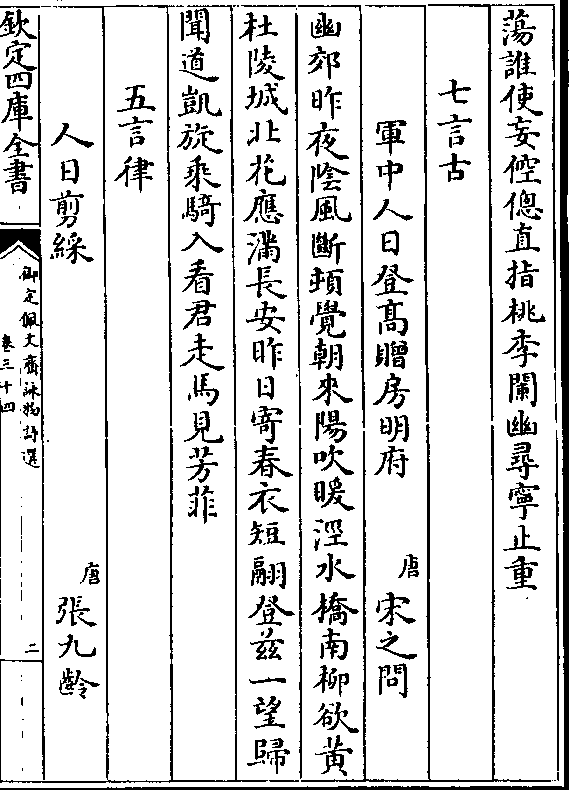 蕩誰使妄倥傯直指桃李闌幽尋寧止重
七言古
軍中人日登髙贈房明府 唐 宋之問
幽郊昨夜陰風斷頓覺朝來陽吹暖涇水橋南柳欲黄
杜陵城北花應滿長安昨日寄春衣短翮登兹一望歸
聞道凱旋乘騎入看君走馬見芳菲
五言律
人日剪綵 唐 張九齡
欽定四庫全書
御定佩文齋詠物詩選
卷三十四
二